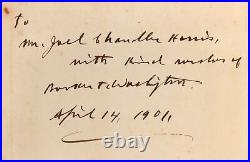 To
Mr. Joel Chandler Harris,
with kind wishes of
Booker T. Washington.
April 14, 1901.